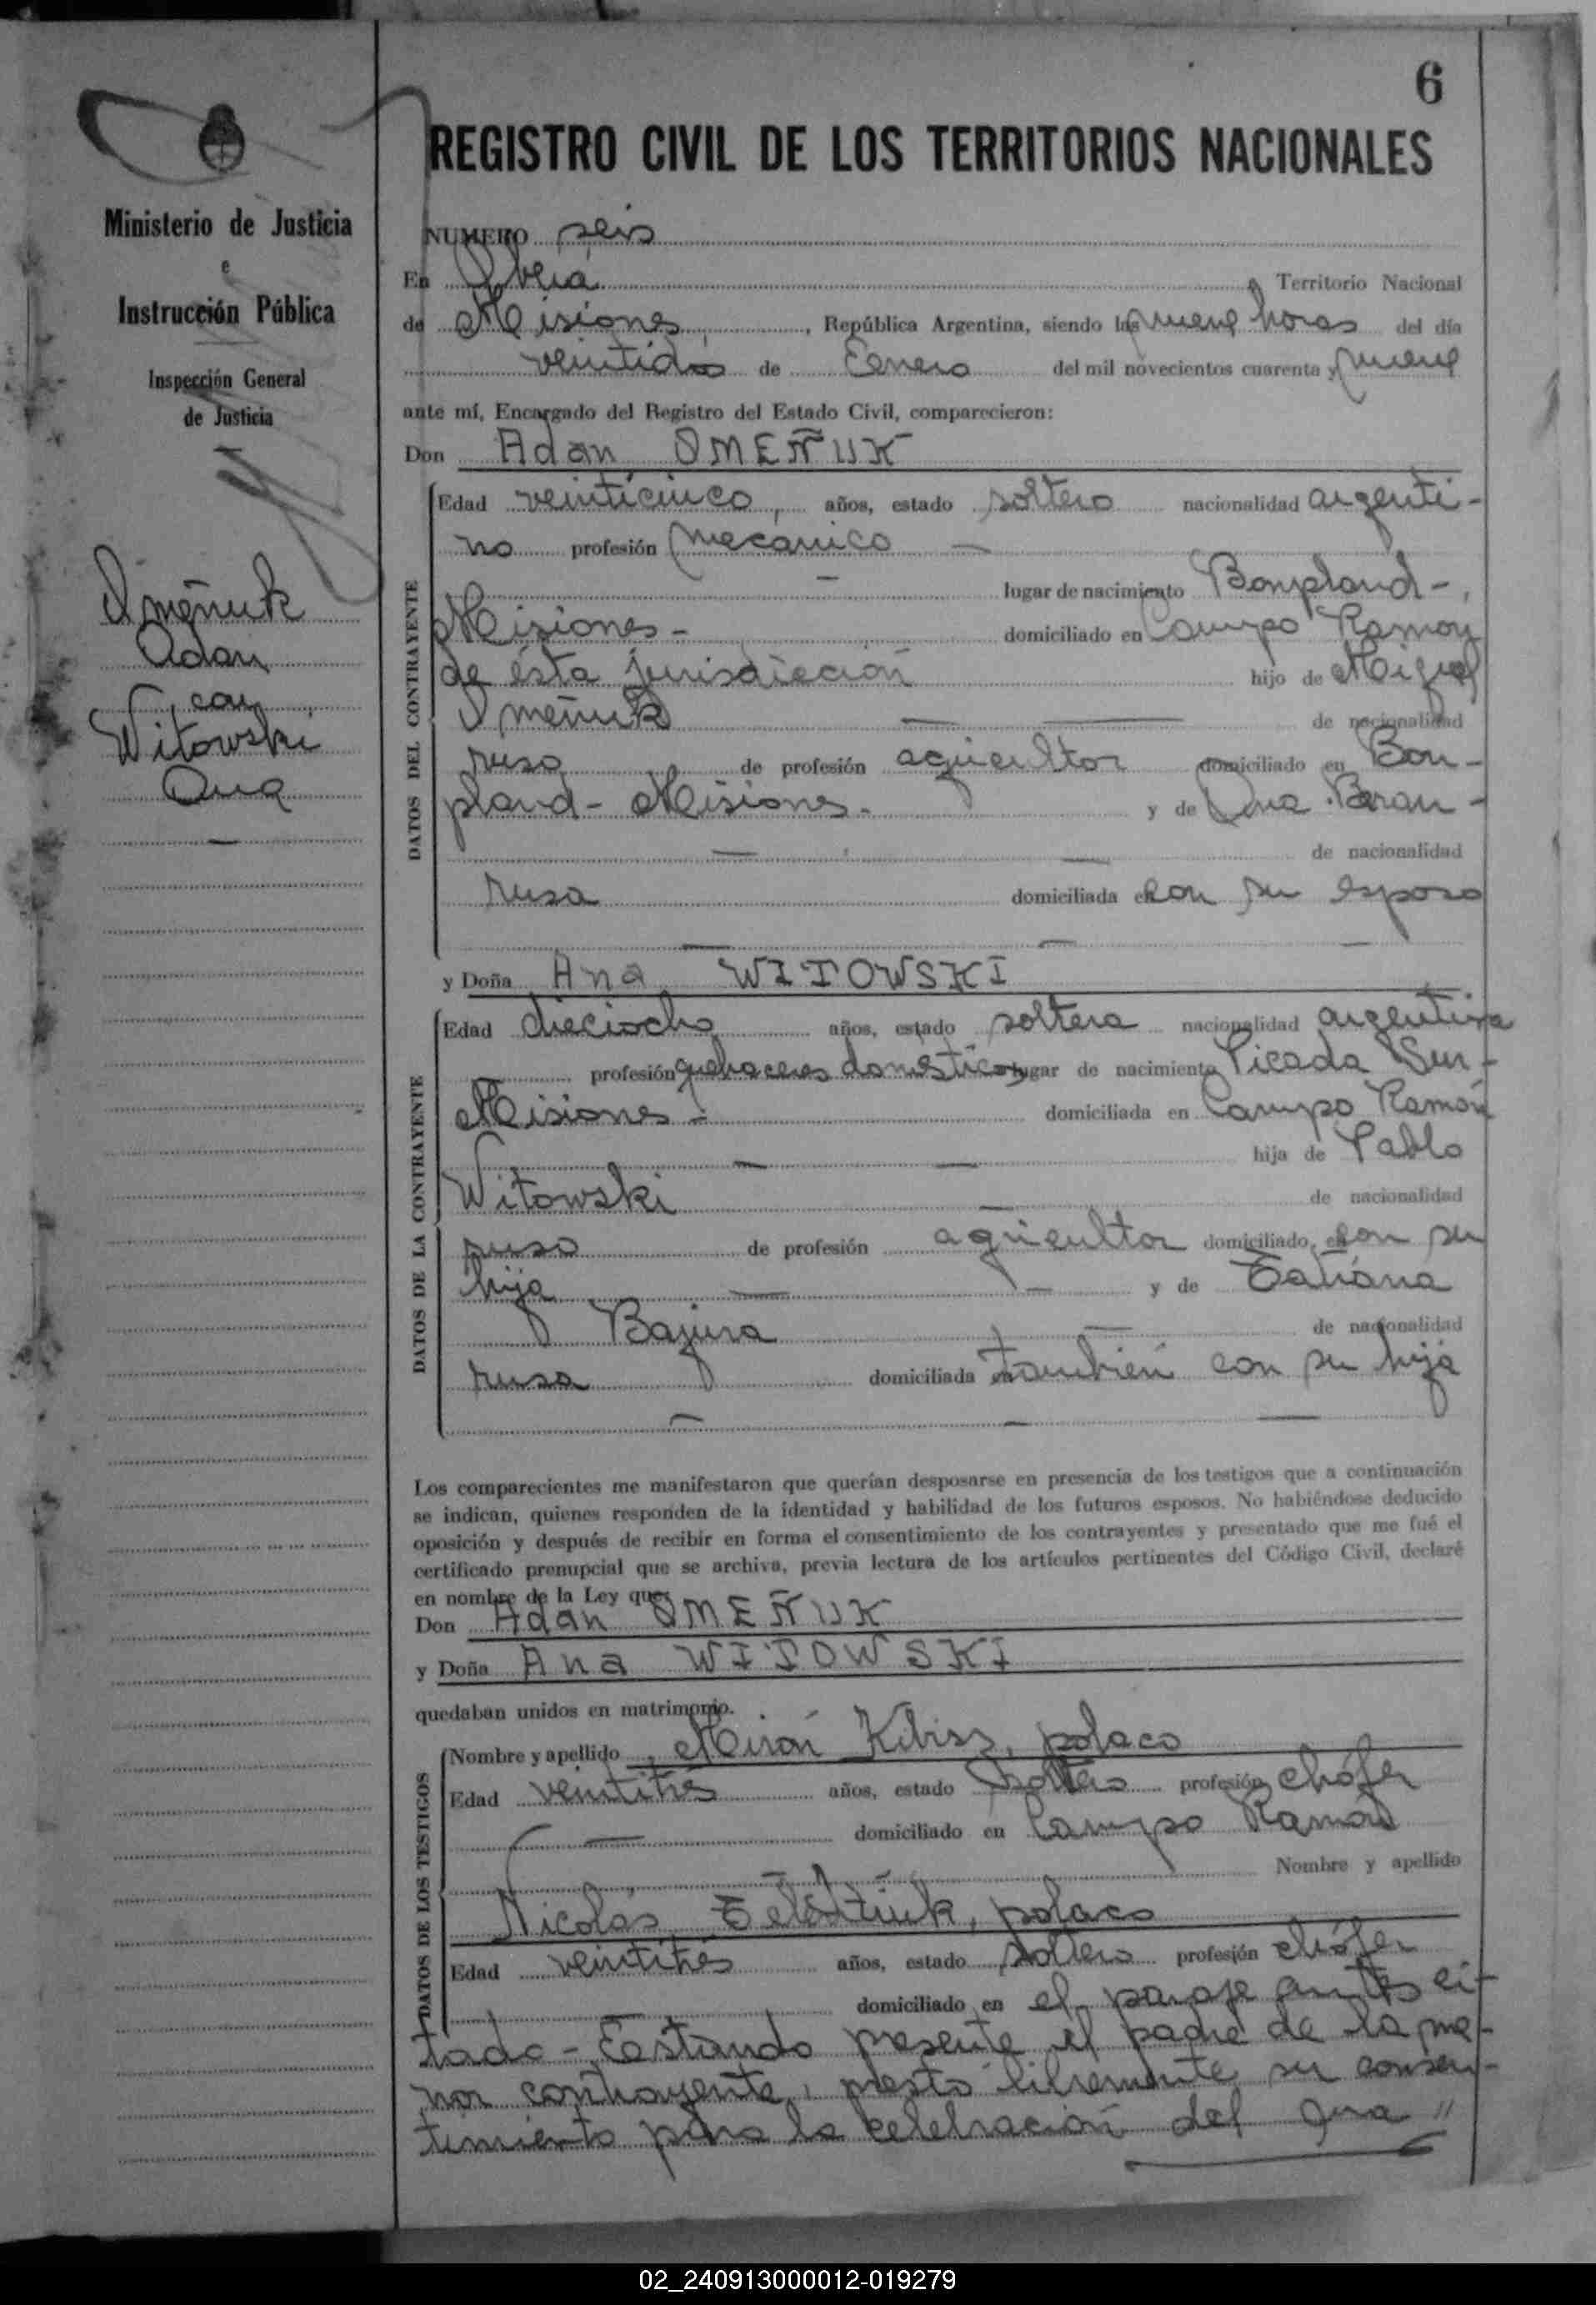 6
REGISTRO CIVIL DE LOS TERRITORIOS NACIONALES
Ministerio de Justicia
e
Instrucción Pública
Inspección General
de Justicia
Omeñuk
Adan
con
Witowski
Ana
NUMERO seis
En Oberá Territorio Nacional
de Misiones, República Argentina, siendo las nueve horas del día
veintidos de Enero del mil novecientos cuarenta y nueve
ante mí, Encargado del Registro del Estado Civil, comparecieron:
Don Adan OMEÑUK
DATOS DEL CONTRAYENTE
Edad veinticinco, años, estado soltero nacionalidad argenti-
no profesión mecanico -
- lugar de nacimiento Bonpland-,
Misiones- domiciliado en Campo Ramon
de ésta jurisdiccion hijo de Miguel
Omeñuk — — de nacionalidad
ruso de profesión agricultor domiciliado en Bon-
pland- Misiones.- y de Ana Baran-
— — de nacionalidad
rusa domiciliada en con su esposo
— — —
y Doña Ana WITOWSKI
DATOS DE LA CONTRAYENTE
Edad dieciocho años, estado soltera nacionalidad argentina
profesión quehaceres domésticos lugar de nacimiento Picada Sur-
Misiones- domiciliada en Campo Ramón
— — hija de Pablo
Witowski — de nacionalidad
ruso de profesión agricultor domiciliado en con su
hija — — y de Tatiana
Bajura — de nacionalidad
rusa domiciliada en también con su hija
— — —
Los comparecientes me manifestaron que querían desposarse en presencia de los testigos que a continuación
se indican, quienes responden de la identidad y habilidad de los futuros esposos. No habiéndose deducido
oposición y después de recibir en forma el consentimiento de los contrayentes y presentado que me fué el
certificado prenupcial que se archiva, previa lectura de los artículos pertinentes del Código Civil, declaré
en nombre de la Ley que:
Don Adan OMEÑUK
y Doña Ana WITOWSKI
quedaban unidos en matrimonio.
DATOS DE LOS TESTIGOS
Nombre y apellido Mirón Kibisz, polaco
Edad veintitrés años, estado soltero profesión chófer
— domiciliado en Campo Ramon
Nombre y apellido
Nicolás, polaco
Edad veintitrés años, estado soltero profesión chófer
domiciliado en el paraje antes ci-
tado- Estando presente el padre de la me-
nor contrayente, prestó libremente su consen-
timiento para la celebración del
02_240913000012-019279